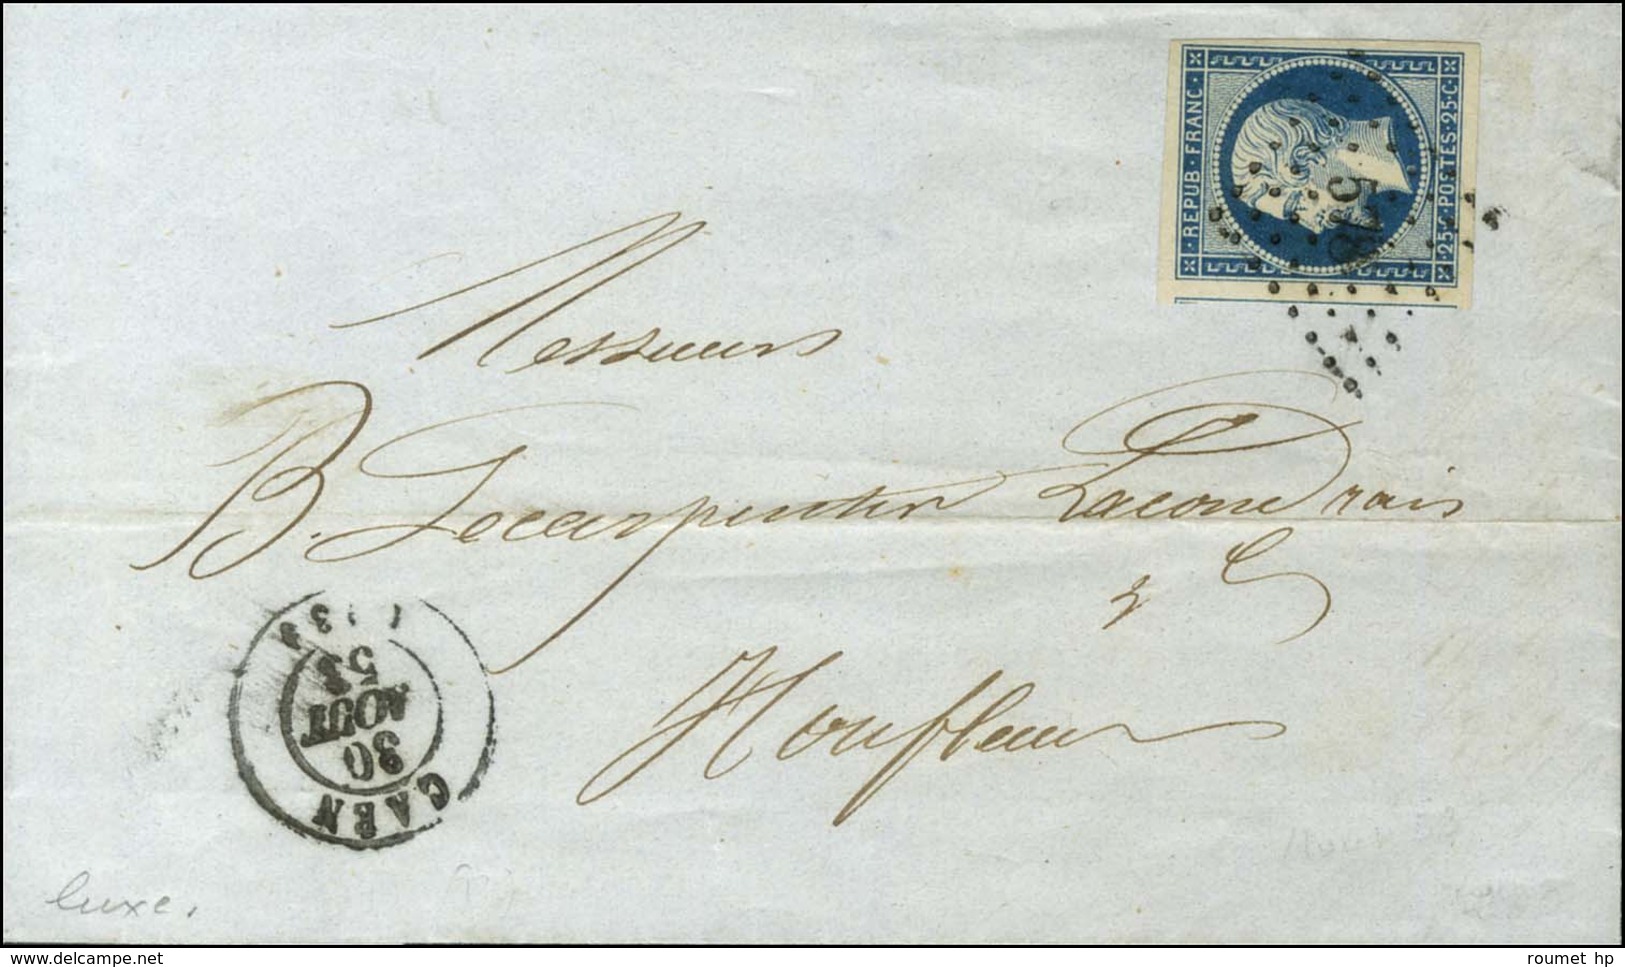 REPUB·FRANC·
·25·C·POSTES·25·C·
578
Messieurs
B. Lecarpentier Lacoudrais
& C
Honfleur
CAEN
30
AOUT
53
luxe.
delcampe.net
roumet hp